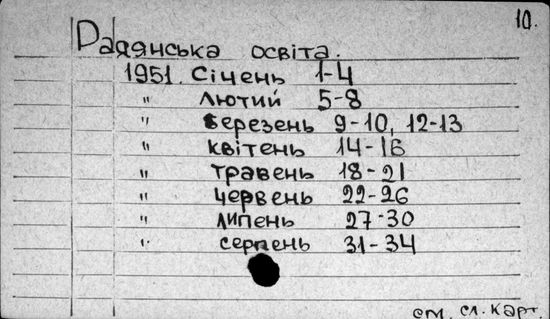 10.
Радянська освіта.
1951. Січень 1-4
" Лютий 5-8
" Березень 9-10, 12-13
" квітень 14-16
" травень 18-21
" червень 22-26
" липень 27-30
" серпень 31-34
см. сл. карт.